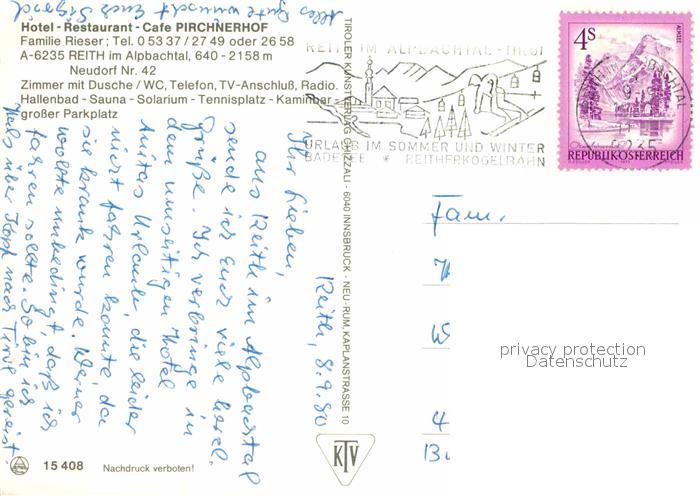 Hotel - Restaurant - Cafe PIRCHNERHOF
Familie Rieser; Tel. 0 53 37 / 27 49 oder 26 58
A-6235 REITH im Alpbachtal, 640 - 2158 m
Neudorf Nr. 42
Zimmer mit Dusche / WC, Telefon, TV-Anschluß, Radio.
Hallenbad - Sauna - Solarium - Tennisplatz - Kaminbar
großer Parkplatz
Reith, 8.9.80
Ihr Lieben,
aus Reith im Alpbachtal
sende ich Euch viele herzl.
Grüße. Ich verbringe in
dem umseitigen Hotel
Anitas Urlaub, die leider
nicht fahren konnte, da
sie krank wurde. Werner
wollte unbedingt, daß ich
fahren sollte. So bin ich
Hals über Kopf nach Tirol gereist.
Alles Gute wünscht Euch
TIROLER KUNSTVERLAG CHIZZALI - 6040 INNSBRUCK - NEU-RUM, KAPLANSTRASSE 10
KTV
15 408
Nachdruck verboten!
REITH IM ALPBACHTAL - TIROL
URLAUB IM SOMMER UND WINTER
BADESEE * REITHERKOGELBAHN
4S
ALMSEE
REPUBLIK ÖSTERREICH
6235
Fam.
privacy protection
Datenschutz